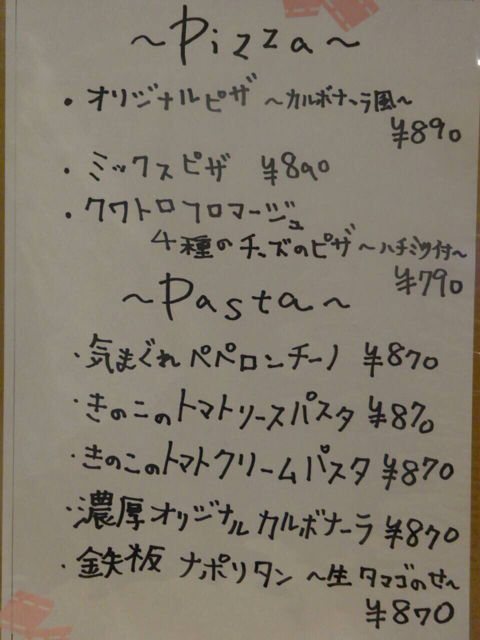 ~Pizza~
・オリジナルピザ ~カルボナーラ風~
¥890
・ミックスピザ ¥890
・クワトロフロマージュ
4種のチーズのピザ~ハチミツ付~
¥790
~Pasta~
・気まぐれペペロンチーノ ¥870
・きのこのトマトソースパスタ ¥870
・きのこのトマトクリームパスタ ¥870
・濃厚オリジナルカルボナーラ ¥870
・鉄板 ナポリタン ~生タマゴのせ~
¥870